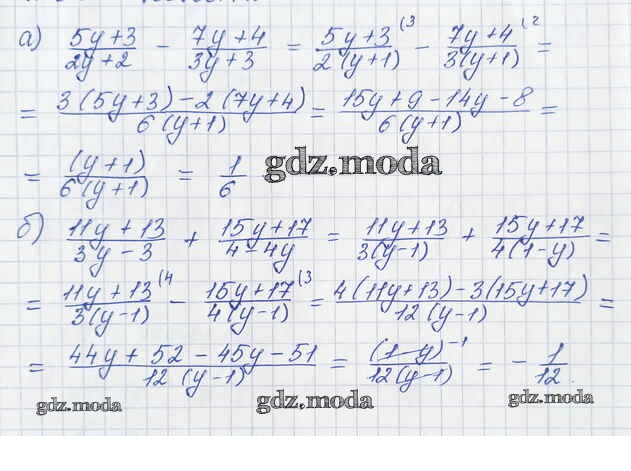 а) (5y+3)/(2y+2) − (7y+4)/(3y+3) = (5y+3)/(2(y+1)) (3 − (7y+4)/(3(y+1)) (2 =
= (3(5y+3)−2(7y+4))/(6(y+1)) = (15y+9−14y−8)/(6(y+1)) =
= (y+1)/(6(y+1)) = 1/6 gdz.moda
б) (11y+13)/(3y−3) + (15y+17)/(4−4y) = (11y+13)/(3(y−1)) + (15y+17)/(4(1−y)) =
= (11y+13)/(3(y−1)) (4 − (15y+17)/(4(y−1)) (3 = (4(11y+13)−3(15y+17))/(12(y−1)) =
= (44y+52−45y−51)/(12(y−1)) = (1−y)⁻¹/(12(y−1)) = −1/12.
gdz.moda gdz.moda gdz.moda